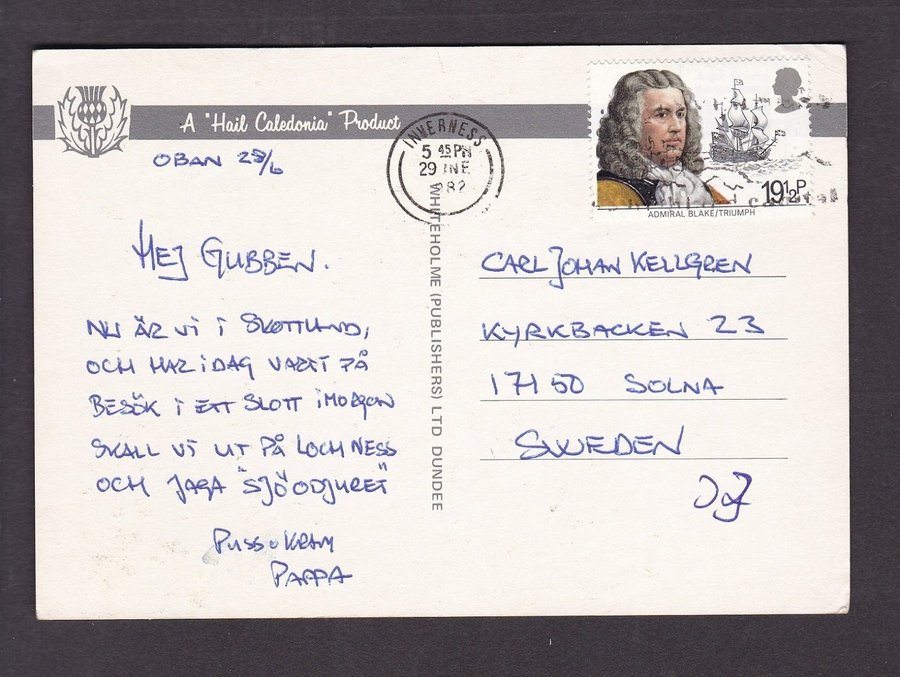 A "Hail Caledonia" Product
OBAN 28/6
INVERNESS
5 45 PM
29 JNE
1982
19½P
ADMIRAL BLAKE/TRIUMPH
HEJ GUBBEN.
NU ÄR VI I SKOTTLAND,
OCH HAR IDAG VARIT PÅ
BESÖK I ETT SLOTT IMORGON
SKALL VI UT PÅ LOCH NESS
OCH JAGA "SJÖODJURET"
PUSS o KRAM
PAPPA
WHITEHOLME (PUBLISHERS) LTD DUNDEE
CARL JOHAN KELLGREN
KYRKBACKEN 23
171 50 SOLNA
SWEDEN